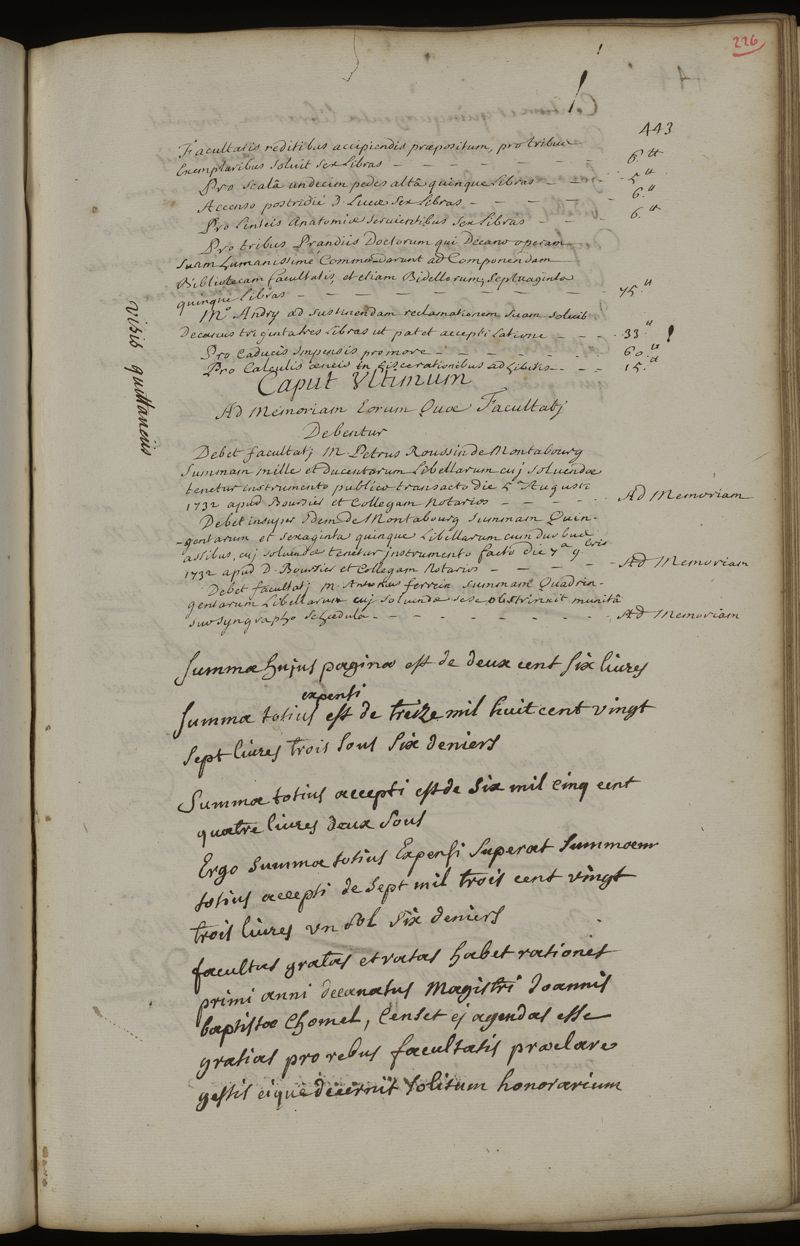 226
443
Facultatis reditibus accipiendis præpositum, pro tribus
Exemplaribus soluit sex Libras — 6.tt
Pro scalâ undecim pedes altâ quinque Libras — 5.tt
Accenso postridiè D. Lucæ sex Libras — 6.tt
Pro Linteis Anatomiæ servientibus sex Libras — 6.tt
Pro tribus Prandiis Doctorum qui Decano operam
suam humanissimè Commodarunt ad Componendam
Bibliotecam facultatis, et etiam Bidellorum, septuaginta
quinque Libras — 75.tt
Mr. Andry ad sustinendam reclamationem suam soluit
Decanus triginta tres Libras ut patet accepti latione — 33.tt
Pro Caducis Impensis promore — 60.tt
Pro Calculis æneis in ad Libitis — 15.tt
Caput Ultimum
Ad Memoriam Eorum Quæ Facultatj
Debentur
Debet facultatj M. Petrus Roussin de Montabourg
summam mille et ducentarum Libellarum cuj soluendæ
tenetur instrumento publico transacto die 4a Augusti
1732 apud Boursier et Collegam Notarios — Ad Memoriam
Debet insuper Idem de Montabourg summam Quin-
-gentarum et sexaginta quinque Libellarum cum duobus
assibus, cuj soluendæ tenetur jnstrumento facto die 7a 9bris
1732 apud D. Boursier et Collegam Notarios — Ad Memoriam
Debet facultatj M. Antonius ferrein summam Quadrin-
gentarum Libellarum cuj soluendæ sese obstrinxit munitâ
suo syngrapho schedulâ — Ad Memoriam
visis quittanciis
Summa hujus paginæ est de deux cent six livres
Summa totius expensi est de treize mil huit cent vingt
sept livres trois sous six deniers
Summa totius accepti est de six mil cinq cent
quatre livres deux sous
Ergo summa totius Expensi superat summam
totius accepti de sept mil trois cent vingt
trois livres un sol six deniers
facultas gratas et ratas habet rationes
primi anni decanatus Magistri Joannis
baptistæ Chomel, Censet ej agendas esse
gratias pro rebus facultatis præclare
gestis eique decernit solitum honorarium